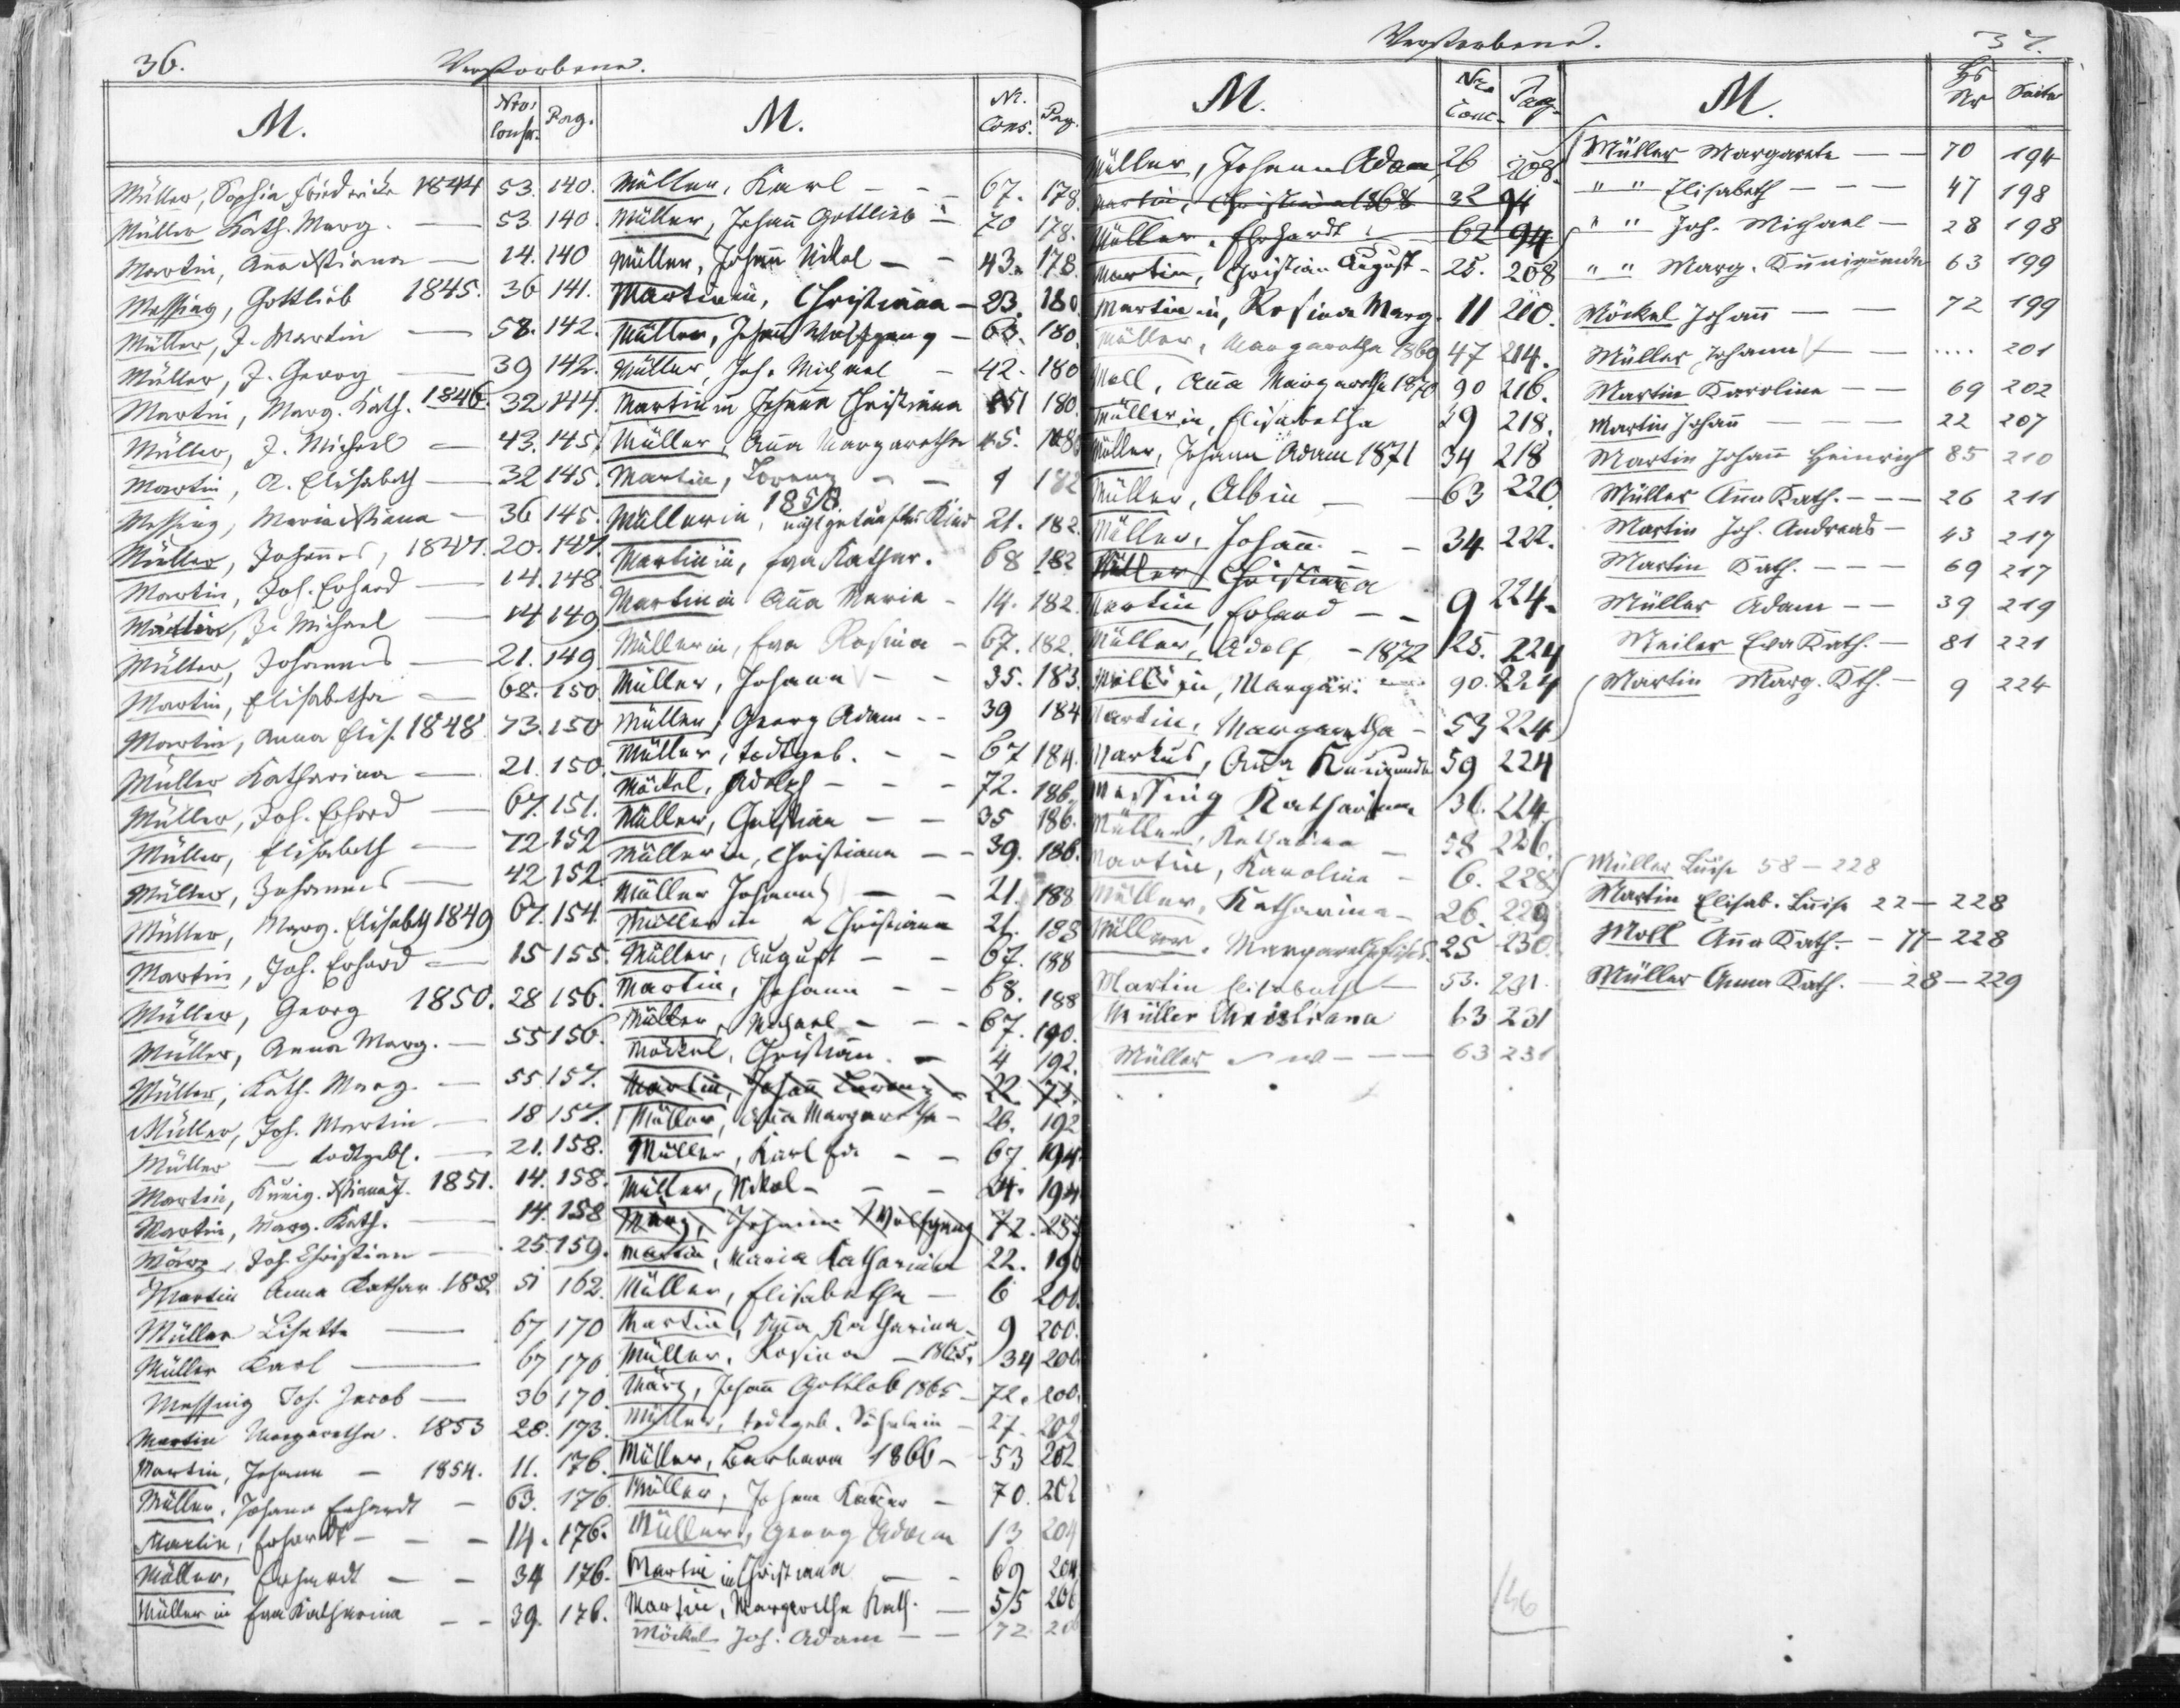 36.
Verstorbene.
M. Nro. Conscr. Pag.
Müller, Sophia Friederike 1844 53. 140.
Müller Kath. Marg. — 53. 140.
Martin, Anna Xstiana — 14. 140
Messing, Gottlieb 1845. 36 141.
Müller, J. Martin — 58. 142.
Müller, J. Georg — 39 142.
Martin, Marg. Kath. 1846. 32 144.
Müller, J. Michael — 43. 145.
Martin, A. Elisabeth — 32 145.
Messing, Maria Xstiana — 36 145.
Müller, Johannes, 1847. 20. 147.
Martin, Joh. Erhard — 14. 148
J. Michael — 14 149
Müller, Johannes — 21. 149.
Martin, Elisabetha — 68. 150.
Martin, Anna Elis. 1848. 73. 150
Müller Katharina — 21. 150.
Müller, Joh. Erhard — 67. 151.
Müller, Elisabeth — 72 152
Müller, Johannes — 42 152.
Müller, Marg. Elisabeth 1849 67. 154.
Martin, Joh. Erhard — 15 155.
Müller, Georg 1850. 28 156.
Müller, Anna Marg. — 55 156.
Müller, Kath. Marg. — 55. 157.
Müller, Joh. Martin — 18 157.
Müller — todtgeb. — 21. 158.
Martin, Kunig. Xstiana 1851. 14. 158.
Martin, Marg. Kath. — 14. 158
März, Joh. Christian — 25. 159.
Martin Anna Kathar. 1852 51 162.
Müller Lisette — 67 170
Müller Karl — 67 170
Messing Joh. Jacob — 36 170.
Martin Margaretha. 1853 28. 173.
Martin, Johann — 1854. 11. 176.
Müller, Johann Erhardt — 63. 176.
Martin, Erhardt — — 14. 176.
Müller, Erhardt — — 34 176.
Müllerin Eva Katharina — — 39. 176.
M. Nr. Cons. Pag.
Müller, Karl — — 67. 178.
Müller, Johann Gottlieb — 70 178.
Müller, Johann Nikol — — 43. 178.
Martinin, Christiana — 23. 180.
Müller, Johann Wolfgang — 63. 180.
Müller, Joh. Michael — 42. 180
Martinin Johanna Christiana 51 180.
Müller, Anna Margaretha 45. 180
Martin, Lorenz — — 9 182
1858
Müllerin, nicht getauftes Kind 21. 182.
Martinin, Eva Kathar. 68 182
Martinin Anna Maria — 14. 182.
Müllerin, Eva Rosina — 67. 182.
Müller, Johann — — 35. 183.
Müller, Georg Adam — — 39 184
Müller, todtgeb. — — 67 184.
Möckel, Adolph — — — 72. 186.
Müller, Christian — — 35 186.
Müllerin, Christiana — — 39. 186.
Müller Johann — — 21. 188
Müllerin Christiana 21. 188
Müller, August — — 67. 188
Martin, Johann — — 68. 188
Müller, Michael — — — 67. 190.
Möckel, Christian. — 4 192.
Martin, Johann Lorenz 22. 73.
Müller, Anna Margaretha — 26. 192
Müller, Karl — — 67. 194.
Müller, Nikol — — — 24. 194
März, Johann Wolfgang 72.
Martin, Maria Katharina 22. 196
Müller, Elisabetha — 6 200.
Martin, Anna Katharina — 9 200.
Müller, Rosina — 1865. 34 200.
März, Johann Gottlob 1865 — 72. 200.
Müller, todtgeb. Söhnlein — 27. 202
Müller, Barbara 1866 — 53 202
Müller, Johann — 70. 202
Müller, Georg Adam 13 204
Martinin Christiana — — 69 204
Martin, Margaretha Kath. — 55 206
Möckel Joh. Adam — — 72 206
Verstorbene.
37.
M. Nro. Cons. Pag.
Müller, Johann Adam, 26 208.
Martin, Christiana 1868 32 94
Müller, Ehrhardt 62 94
Martin, Christian August — 25. 208
Martinin, Rosina Marg. 11 210.
Müller, Margaretha 1869 47 214.
Moll, Anna Margaretha 1870 90 216.
Müllerin, Elisabetha 39 218.
Müller, Johann Adam 1871 34 218
Müller, Albin — — 63 220
Müller, Johann. — — 34. 222.
Müller Christiana
Martin, Erhard — — 9 224.
Müller, Adolf — 1872 25. 224
in, Margar. 90. 224
Martin, Margaretha — 53 224
Markus, Anna Kunigunda 59 224
Messing Katharina 36. 224
Müller, Katharina — 58 226.
Martin, Karoline — 6. 228
Müller, Katharina — 26. 229
Müller, Margaretha Elisab. 25 230.
Martin Elisabetha — 53. 231.
Müller Christiana 63 231
Müller — — — 63 231
146
M. Hs Nr Seite
Müller Margareta — — 70 194
" " Elisabeth — — — 47 198
" " Joh. Michael — 28 198
" " Marg. Kunigunda 63 199
Möckel Johann — — 72 199
Müller, Johann — — .... 201
Martin Karoline — — 69 202
Martin Johann — — — 22 207
Martin Johann Heinrich 85 210
Müller Anna Kath. — — — 26 211
Martin Joh. Andreas — 43 217
Martin Kath. — — — 69 217
Müller Adam — — 39 219
Meiler Eva Kath. — 81 221
Martin Marg. Kth. — 9 224
Müller Luise 58 — 228
Martin Elisab. Luise 22 — 228
Moll Anna Kath. — 77 — 228
Müller Anna Kath. — 28 — 229